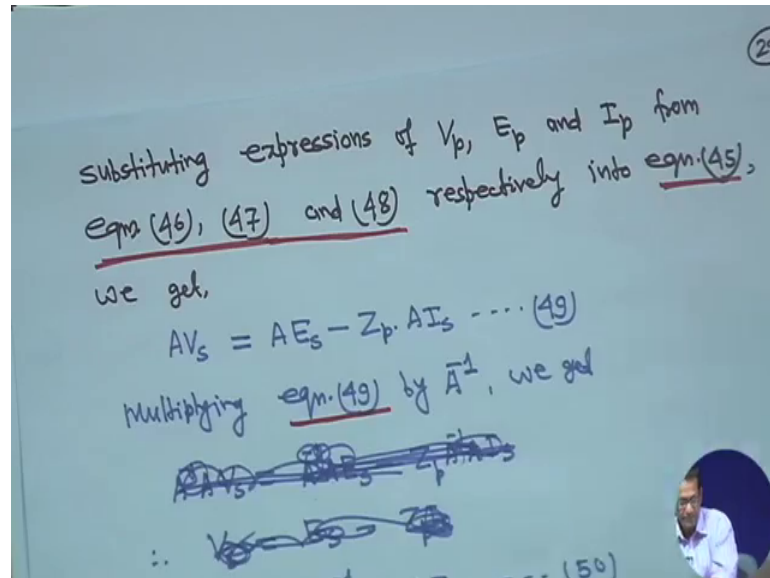 substituting expressions of Vp, Ep and Ip from
eqns. (46), (47) and (48) respectively into eqn. (45),
we get,
AVs = AEs - Zp. AIs ---- (49)
Multiplying eqn. (49) by A⁻¹, we get
∴
(50)